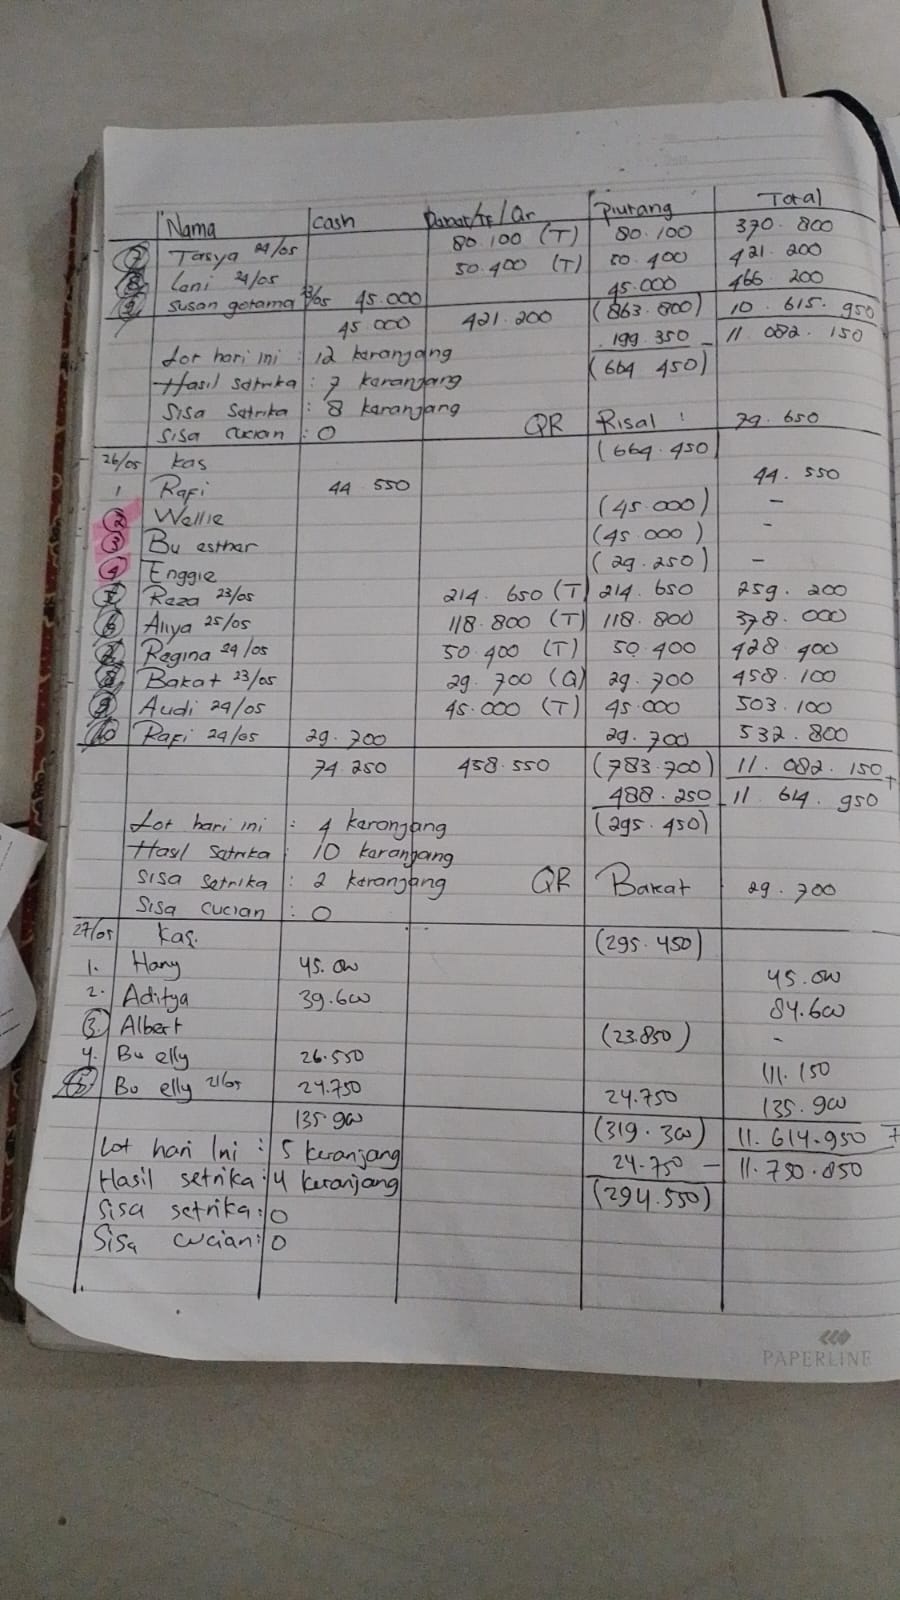 Nama Cash Danat/TF/Qr Piutang Total
7 Tasya 24/05 80.100 (T) 80.100 370.800
8 Lani 24/05 50.400 (T) 50.400 421.200
9 Susan gotama 23/05 45.000 45.000 466.200
45.000 421.200 (863.800) 10.615.950
199.350 - 11.082.150
Lot hari ini : 12 keranjang (664.450)
Hasil Setrika : 7 keranjang
Sisa Setrika : 8 keranjang
Sisa Cucian : 0 QR Risal : 79.650
26/05 kas (664.450)
1 Rafi 44.550 44.550
2 Wellie (45.000) -
3 Bu esther (45.000) -
4 Enggie (29.250) -
5 Raza 23/05 214.650 (T) 214.650 259.200
6 Aliya 25/05 118.800 (T) 118.800 378.000
7 Regina 24/05 50.400 (T) 50.400 428.400
8 Bakat 23/05 29.700 (Q) 29.700 458.100
9 Audi 24/05 45.000 (T) 45.000 503.100
10 Rafi 24/05 29.700 29.700 532.800
74.250 458.550 (783.700) 11.082.150 +
488.250 - 11.614.950
Lot hari ini : 4 keranjang (295.450)
Hasil Setrika : 10 keranjang
Sisa Setrika : 2 keranjang QR Bakat 29.700
Sisa Cucian : 0
27/05 Kas. (295.450)
1. Hany 45.000 45.000
2. Aditya 39.600 84.600
3. Albert (23.850) -
4. Bu elly 26.550 111.150
5 Bu elly 21/05 24.750 24.750 135.900
135.900 (319.300) 11.614.950 +
Lot hari Ini : 5 keranjang 24.750 - 11.750.850
Hasil setrika : 4 keranjang (294.550)
Sisa setrika : 0
Sisa cucian : 0
PAPERLINE